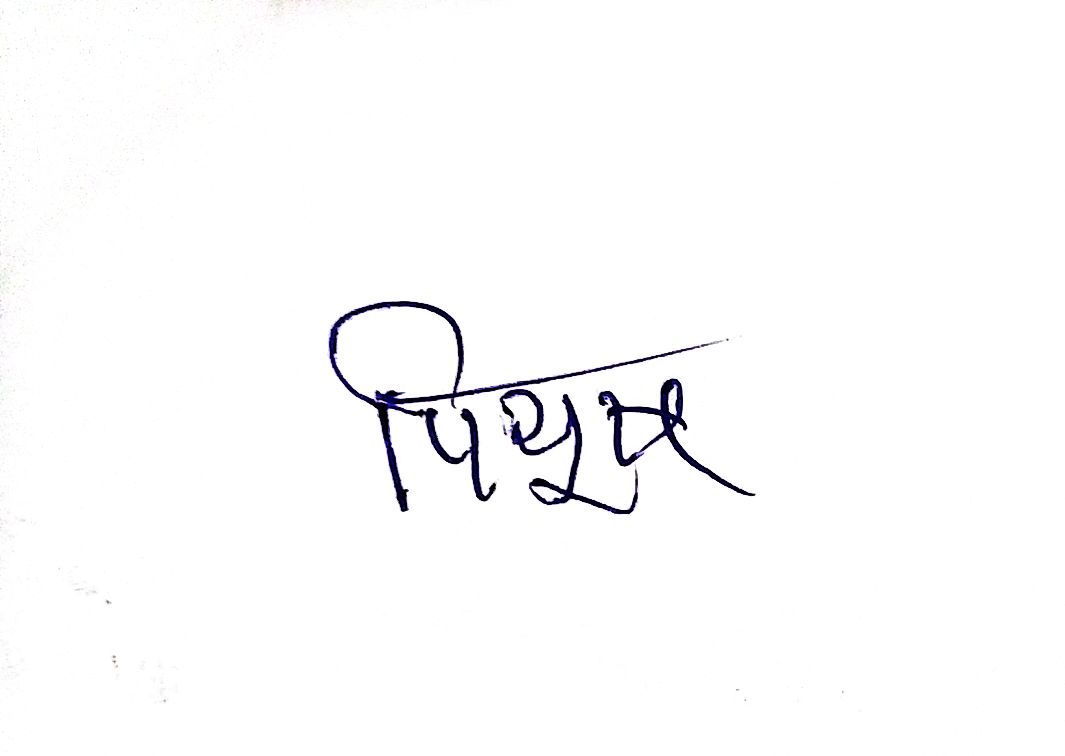 पियूष